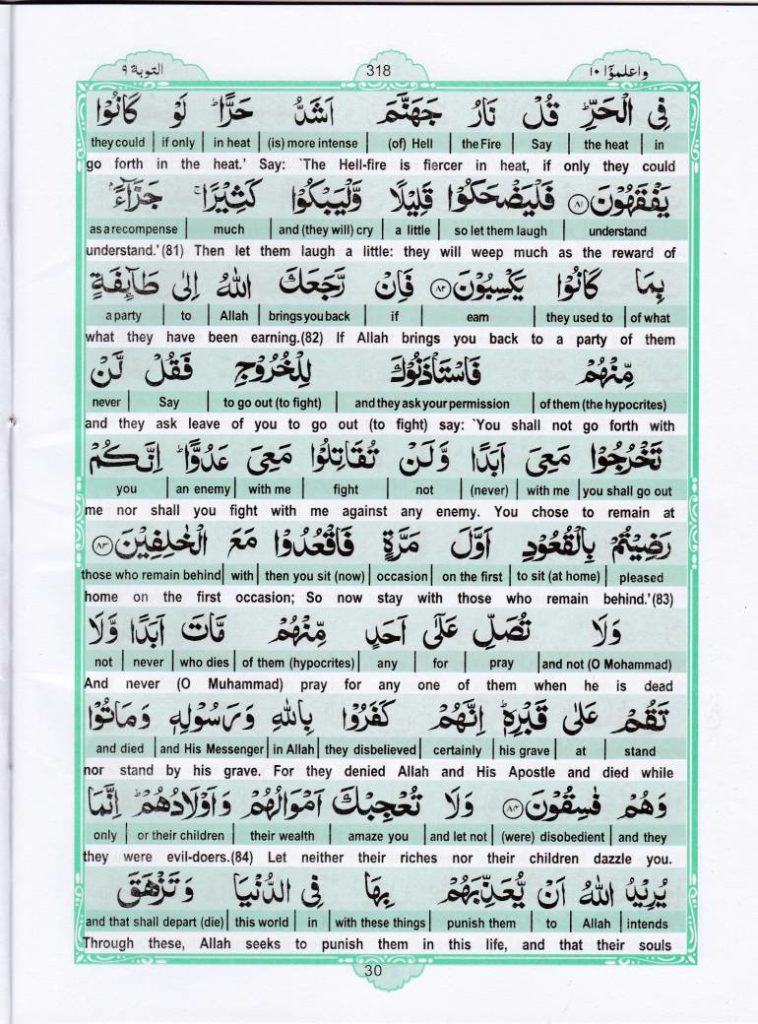 التوبة ٩ 318 واعلموٓا ١٠
فِي الْحَرِّ ؕ قُلْ نَارُ جَهَنَّمَ اَشَدُّ حَرًّا ؕ لَوْ كَانُوْا
they could | if only | in heat | (is) more intense | (of) Hell | the Fire | Say | the heat | in
go forth in the heat.' Say: `The Hell-fire is fiercer in heat, if only they could
يَفْقَهُوْنَ ﴿۸۱﴾ فَلْيَضْحَكُوْا قَلِيْلًا وَّلْيَبْكُوْا كَثِيْرًا ۚ جَزَآءًۢ
as a recompense | much | and (they will) cry | a little | so let them laugh | understand
understand.'(81) Then let them laugh a little: they will weep much as the reward of
بِمَا كَانُوْا يَكْسِبُوْنَ ﴿۸۲﴾ فَاِنْ رَّجَعَكَ اللّٰهُ اِلٰى طَآئِفَةٍ
a party | to | Allah | brings you back | if | earn | they used to | of what
what they have been earning.(82) If Allah brings you back to a party of them
مِّنْهُمْ فَاسْتَاْذَنُوْكَ لِلْخُرُوْجِ فَقُلْ لَّنْ
never | Say | to go out (to fight) | and they ask your permission | of them (the hypocrites)
and they ask leave of you to go out (to fight) say: `You shall not go forth with
تَخْرُجُوْا مَعِيَ اَبَدًا وَّلَنْ تُقَاتِلُوْا مَعِيَ عَدُوًّا ؕ اِنَّكُمْ
you | an enemy | with me | fight | not | (never) | with me | you shall go out
me nor shall you fight with me against any enemy. You chose to remain at
رَضِيْتُمْ بِالْقُعُوْدِ اَوَّلَ مَرَّةٍ فَاقْعُدُوْا مَعَ الْخٰلِفِيْنَ ﴿۸۳﴾
those who remain behind | with | then you sit (now) | occasion | on the first | to sit (at home) | pleased
home on the first occasion; So now stay with those who remain behind.'(83)
وَلَا تُصَلِّ عَلٰٓى اَحَدٍ مِّنْهُمْ مَّاتَ اَبَدًا وَّلَا
not | never | who dies | of them (hypocrites) | any | for | pray | and not (O Mohammad)
And never (O Muhammad) pray for any one of them when he is dead
تَقُمْ عَلٰى قَبْرِهٖ ؕ اِنَّهُمْ كَفَرُوْا بِاللّٰهِ وَرَسُوْلِهٖ وَمَاتُوْا
and died | and His Messenger | in Allah | they disbelieved | certainly | his grave | at | stand
nor stand by his grave. For they denied Allah and His Apostle and died while
وَهُمْ فٰسِقُوْنَ ﴿۸۴﴾ وَلَا تُعْجِبْكَ اَمْوَالُهُمْ وَاَوْلَادُهُمْ ؕ اِنَّمَا
only | or their children | their wealth | amaze you | and let not | (were) disobedient | and they
they were evil-doers.(84) Let neither their riches nor their children dazzle you.
يُرِيْدُ اللّٰهُ اَنْ يُّعَذِّبَهُمْ بِهَا فِي الدُّنْيَا وَتَزْهَقَ
and that shall depart (die) | this world | in | with these things | punish them | to | Allah | intends
Through these, Allah seeks to punish them in this life, and that their souls
30